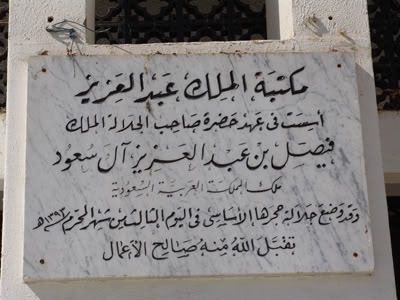 مكتبة الملك عبد العزيز
أسست في عهد حضرة صاحب الجلالة الملك
فيصل بن عبد العزيز آل سعود
ملك المملكة العربية السعودية
وقد وضع جلالته حجرها الأساسي في اليوم الثالث من شهر المحرم ١٣٩٣هـ
تقبل الله منه صالح الأعمال